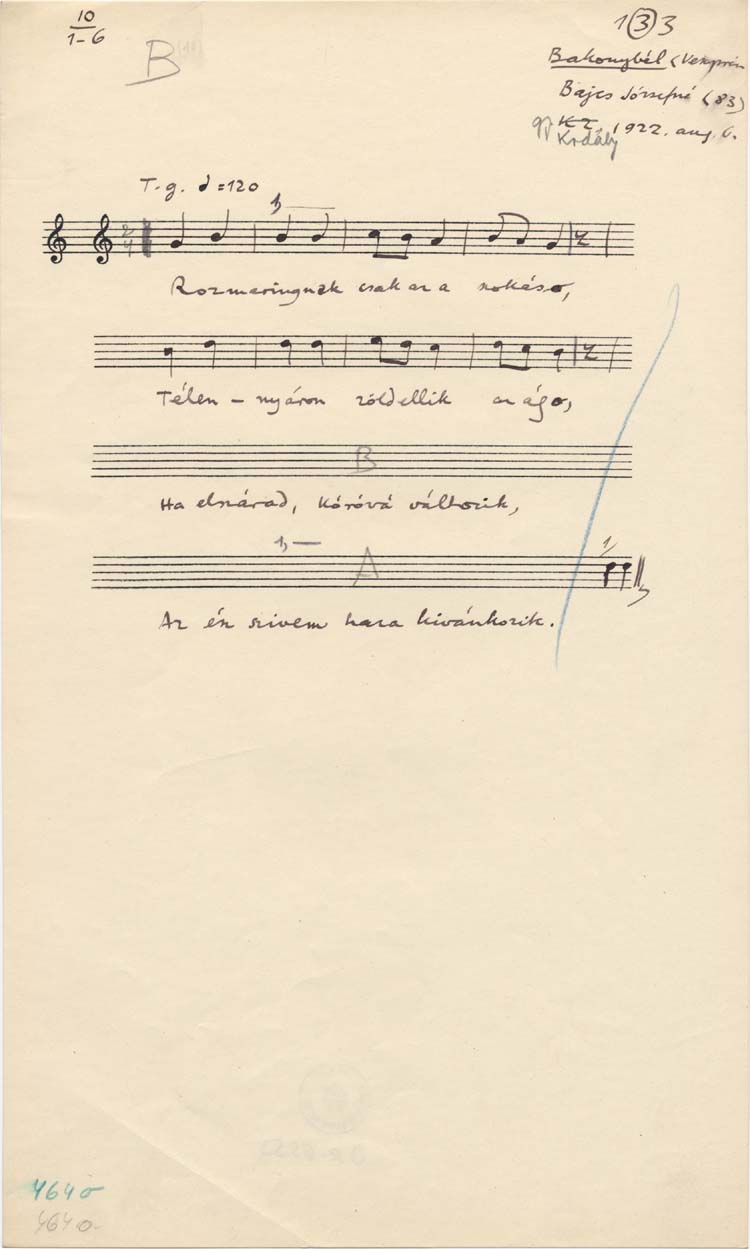 10
1-6
B
133
Bakonybél (Veszprém
Bajcs Józsefné (83)
gy KZ. 1922. aug. 6.
Kodály
T.g. = 120
2
4
Rozmaringnak csak az a szokáso,
Télen - nyáron zöldellik az ágo,
B
Ha elszárad, kóróvá változik,
1) —
A
1)
Az én szivem haza kivánkozik.
464o
464o.